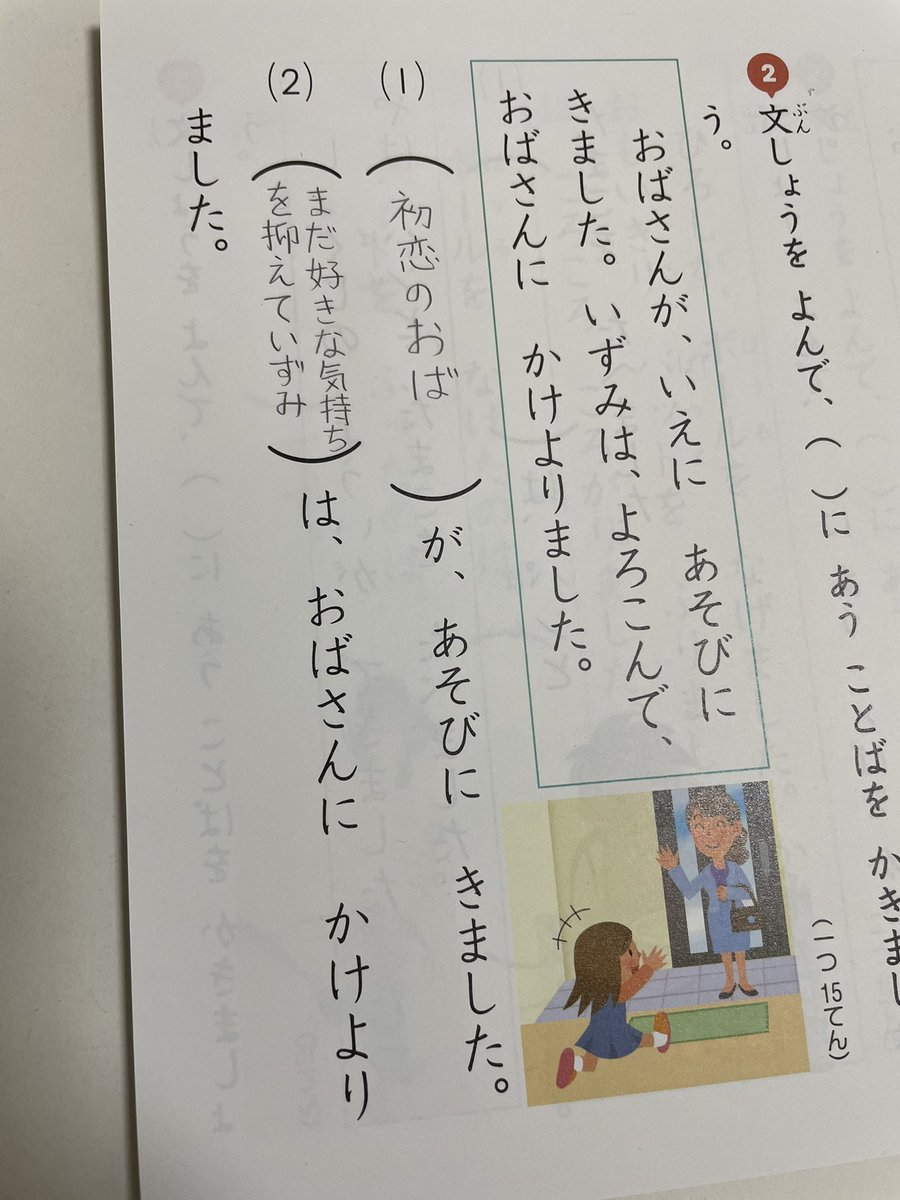 2 文しょうを よんで、( )に あう ことばを かきまし
ぶん
う。
(一つ15てん)
おばさんが、いえに あそびに
きました。いずみは、よろこんで、
おばさんに かけよりました。
(1) (初恋のおば)が、あそびに きました。
(2) (まだ好きな気持ち
を抑えていずみ)は、おばさんに かけより
ました。